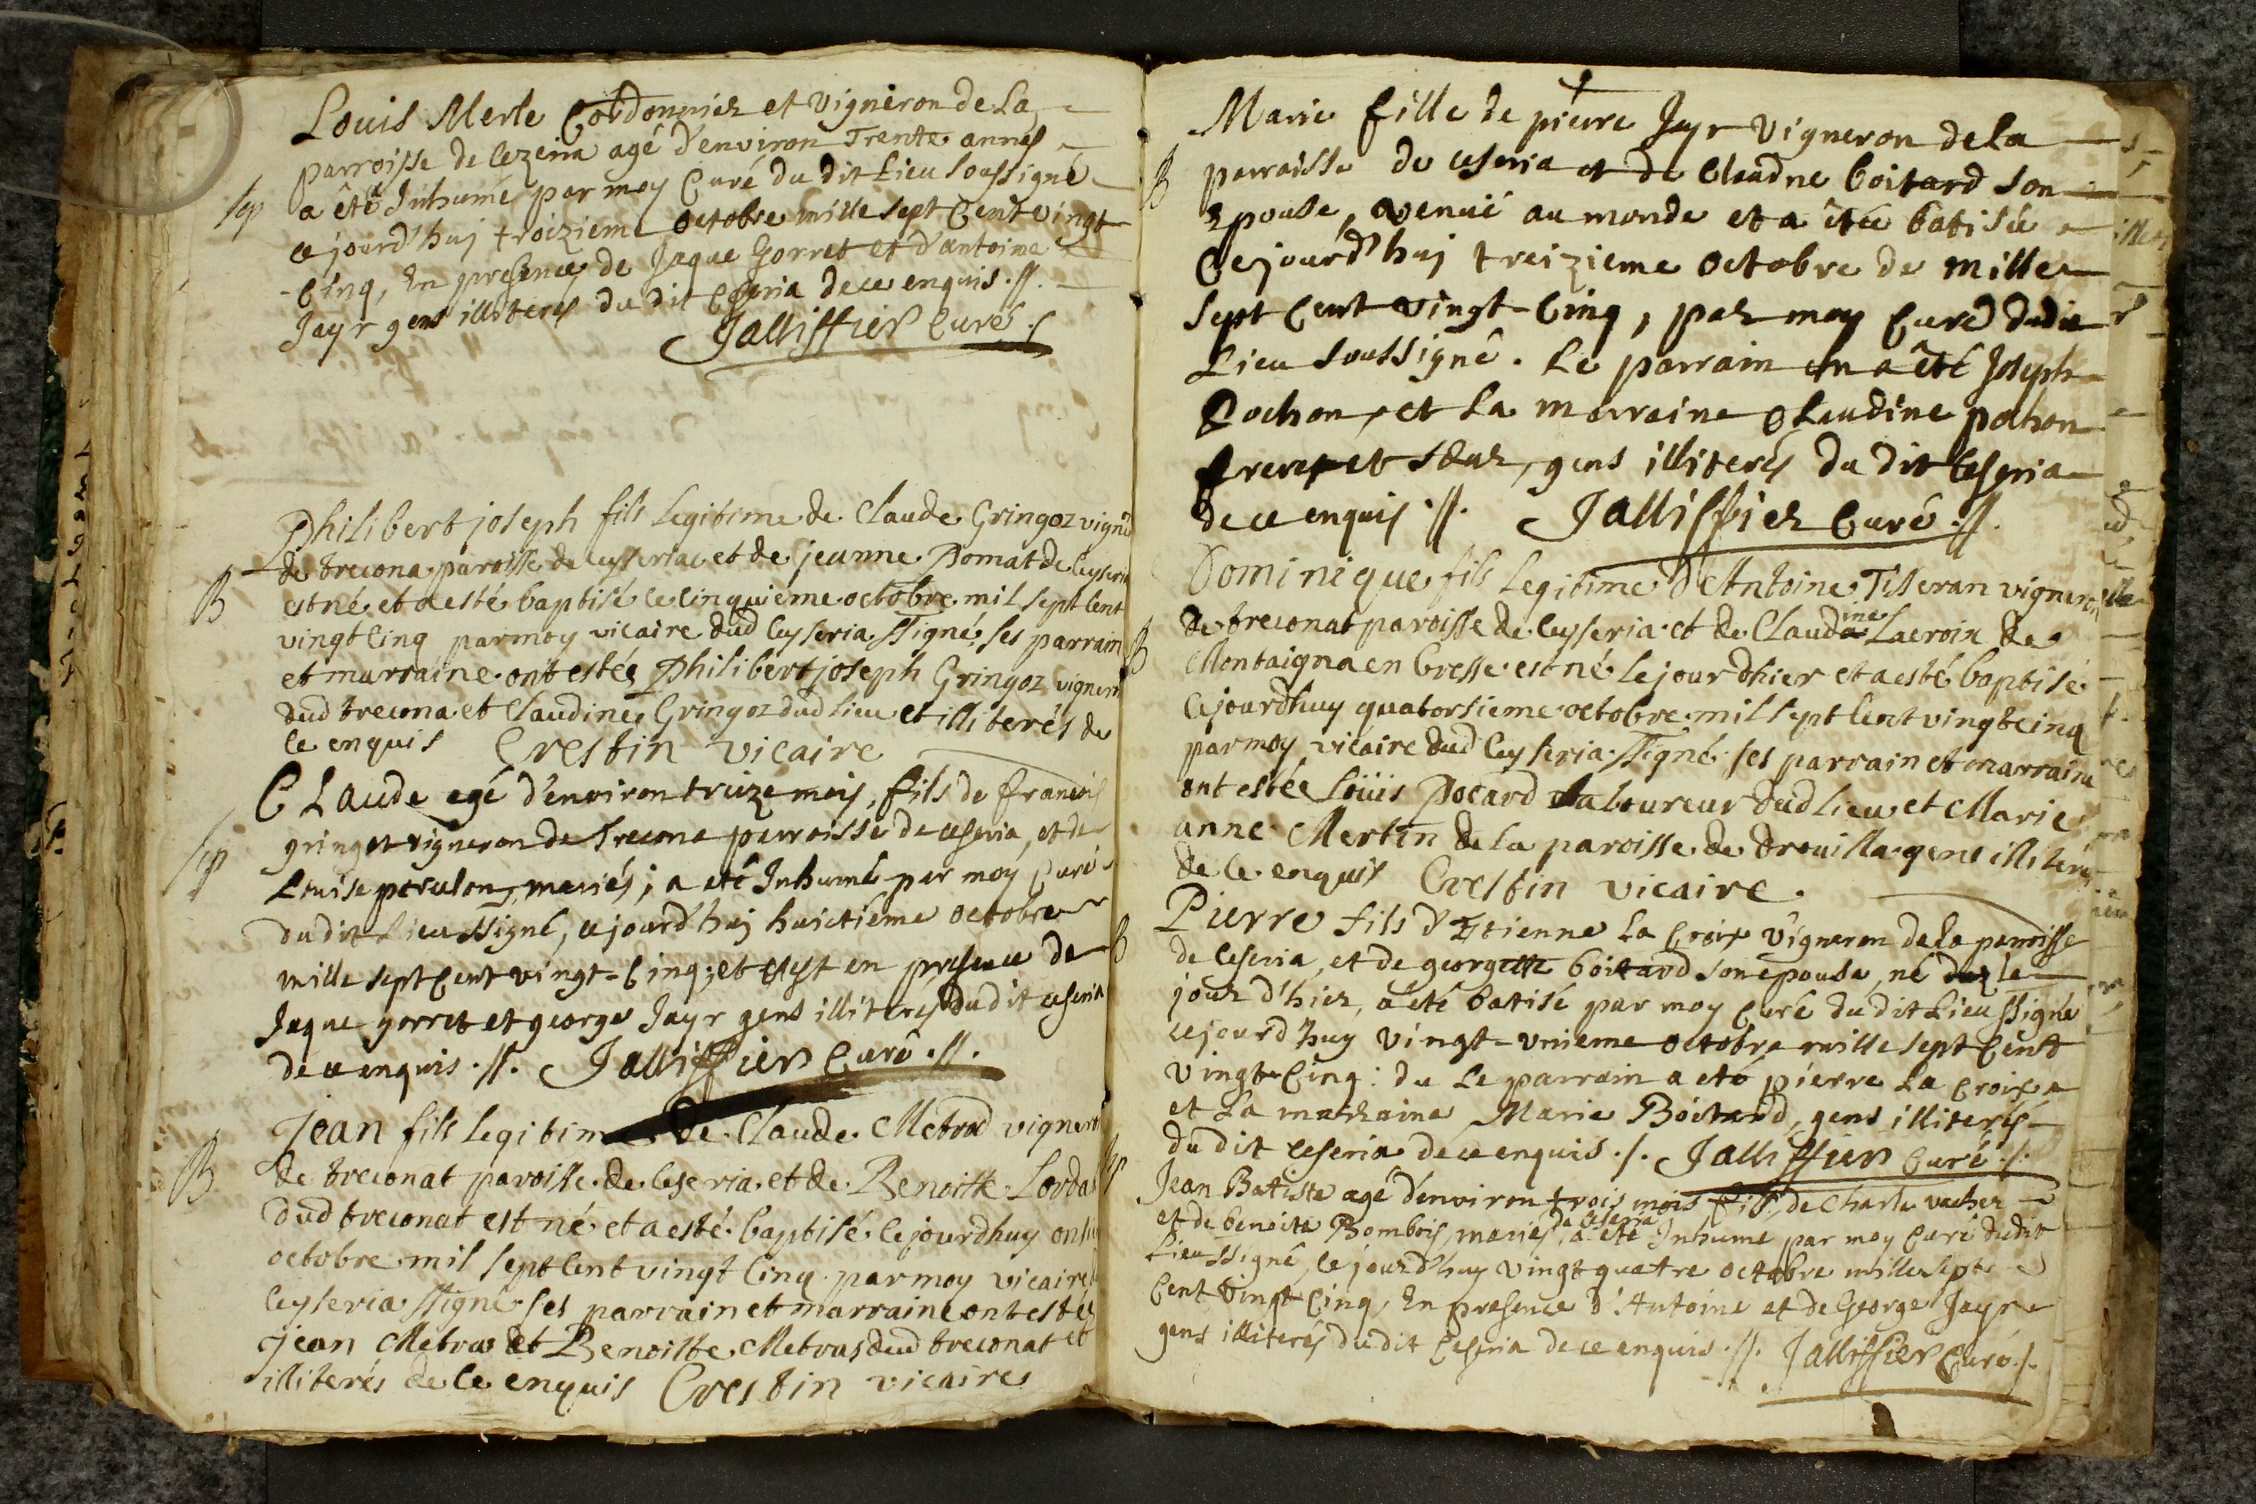 Louis Merle Cordonnier et vigneron de La
parroisse de Cezeria agé d'environ Trente années
Sep
a été Inhumé par moy Curé du dit Lieu soussigné
ce jourd'huj troizieme octobre mille sept Cent vingt
-Cinq, En presences de Jaque Gorret et d'antoine
Jayr gens illiterés du dit Ceseria de ce enquis .//.
Jalliffier Curé ./.
Philibert joseph fils legitime de Claude Gringoz vign
de trecona paroisse de Ceyseria et de jeanne Pomat de Ceyseria
B
est né et a esté baptisé le Cinquieme octobre mil sept Cent
vingt Cinq par moy vicaire dud Ceyseria ssigné ses parrain
et marraine ont estés Philibert joseph Gringoz vigneron
dud trecona et Claudine Gringoz dud lieu et illiterés de
ce enquis Crestin vicaire
Claude agé d'environ treize mois, fils de francois
gringet vigneron de Trecona parroisse de ceseria, et de
Sep
Louise mariés ; a eté Inhumé par moy Curé
du dit Lieu ssigné, ce jourd'huj huictieme octobre
mille sept Cent vingt-Cinq ; et c'est en presence de
Jaque gorret et george Jayr gens illiterés du dit ceseria
de ce enquis .//. Jalliffier Curé .//.
Jean fils legitime de Claude Metras vigneron
B
de treconat paroisse de Ceseria et de Benoitte
dud treconat est né et a esté baptisé ce jourdhuy
octobre mil sept Cent vingt Cinq par moy vicaire
Ceyseria ssigné ses parrain et marraine ont estés
jean Metras et Benoitte Metras dud treconat et
illiterés de ce enquis Crestin vicaire
Marie fille de pierre Jayr vigneron de la
B
parroisse de ceseria et de Claudne boitard son
epouse, venuë au monde et a étée batisée
Ce jourd'huj treizieme octobre de mille
sept Cent vingt-Cinq, par moy Curé dudit
Lieu soussigné. Le parrain en a été Joseph
pochon, et La marraine Claudine pochon
frere et sœur, gens illiterés du dit Ceseria
de ce enquis .//. Jalliffier Curé .//.
Dominique fils legitime d'Antoine Tisseran vigneron
de treconat paroisse de Ceyseria et de Claudine Lacroix de
B
Montaigna en bresse est né le jour dhier et a esté baptisé
Ce jourdhuy quatorsieme octobre mil sept Cent vingt cinq
par moy vicaire dud Ceyseria ssigné ses parrain et marraine
ont estée Loüis Pocard laboureur dud lieu et Marie
anne Mertin de la paroisse de drouilla gens illiterés
de ce enquis Crestin vicaire.
Pierre fils d'Etienne La Croix vigneron de la parroisse
B
de Ceseria, et de georgette boitard son epouse, né le
jour d'hier, a été batisé par moy Curé du dit Lieu ssigné
ce jourd'huy vingt-unieme octobre mille sept Cent
vingt-Cinq : du Le parrain a eté pierre La Croix
et La marraine Marie Boitard, gens illiterés
du dit Ceseria de ce enquis ./. Jalliffier Curé ./.
Sep
Jean Batiste agé d'environ trois mois fils de Charle vacher
de Ceseria
et de benoite Bombois, mariés, a eté Inhumé par moy Curé dudit
Lieu ssigné, ce jourd'huy vingt quatre octobre mille sept
Cent vingt Cinq, En presence d'Antoine et de George Jayr
gens illiterés du dit Ceseria de ce enquis .//. Jalliffier Curé ./.